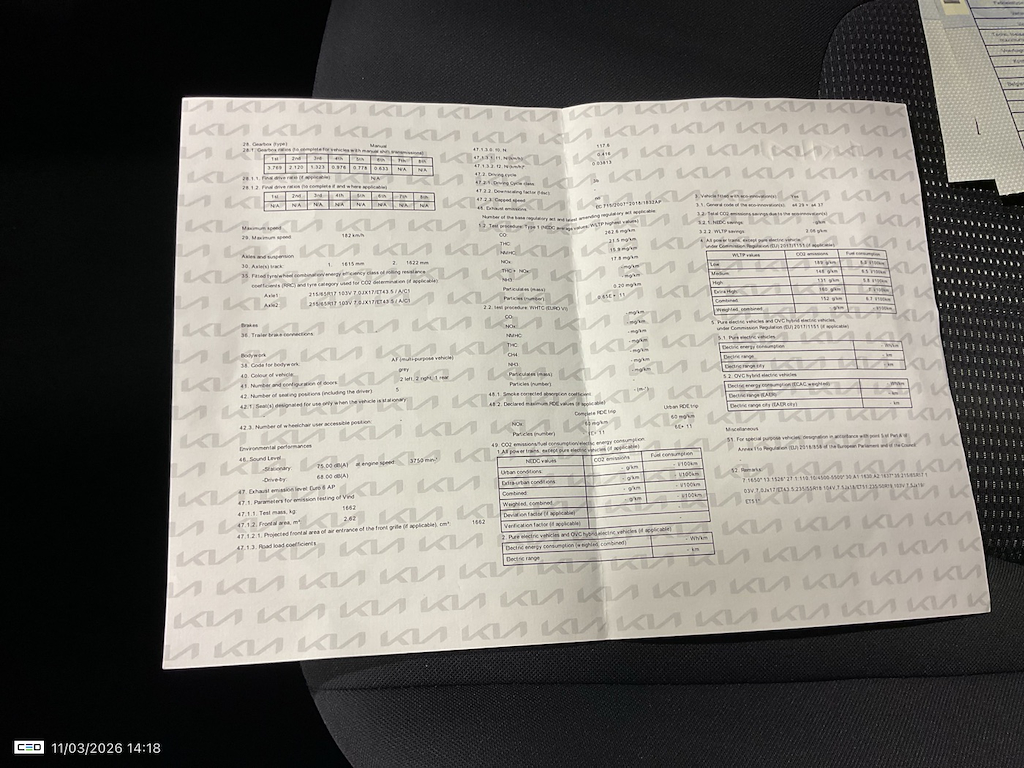 28. Gearbox (type) Manual
28.1. Gearbox ratios (to complete for vehicles with manual shift transmissions)
1st 2nd 3rd 4th 5th 6th 7th 8th
3.769 2.120 1.323 0.976 0.778 0.633 N/A N/A
28.1.1. Final drive ratio (if applicable) N/A
28.1.2. Final drive ratios (to complete if and where applicable)
1st 2nd 3rd 4th 5th 6th 7th 8th
N/A N/A N/A N/A N/A N/A N/A N/A
Maximum speed
29. Maximum speed 182 km/h
Axles and suspension
30. Axle(s) track: 1. 1615 mm 2. 1622 mm
35. Fitted tyre/wheel combination/energy efficiency class of rolling resistance
coefficients (RRC) and tyre category used for CO2 determination (if applicable)
Axle1 215/65R17 103V 7.0JX17/ET43.5 / A/C1
Axle2 215/65R17 103V 7.0JX17/ET43.5 / A/C1
Brakes
36. Trailer brake connections
Bodywork
38. Code for bodywork AF (multi-purpose vehicle)
40. Colour of vehicle grey
41. Number and configuration of doors 2 left, 2 right, 1 rear
42. Number of seating positions (including the driver) 5
42.1. Seat(s) designated for use only when the vehicle is stationary
42.3. Number of wheelchair user accessible position:
Environmental performances
46. Sound Level
-Stationary: 75.00 dB(A) at engine speed: 3750 min-1
-Drive-by: 68.00 dB(A)
47. Exhaust emission level: Euro 6 AP
47.1. Parameters for emission testing of Vind
47.1.1. Test mass, kg: 1662
47.1.2. Frontal area, m² 2.62
47.1.2.1. Projected frontal area of air entrance of the front grille (if applicable), cm² 1662
47.1.3. Road load coefficients
47.1.3.0. f0, N: 117.6
47.1.3.1. f1, N/(km/h)
47.1.3.2. f2, N/(km/h)²
47.2. Driving cycle
47.2.1. Driving Cycle class
47.2.2. Downscaling factor (fdsc)
47.2.3. Capped speed no
48. Exhaust emissions EC 715/2007*2018/1832AP
Number of the base regulatory act and latest amending regulatory act applicable
1.2. Test procedure: Type 1 (NEDC average values, WLTP highest values)
CO: 262.6 mg/km
THC: 21.5 mg/km
NMHC: 15.9 mg/km
NOx: 17.8 mg/km
THC + NOx: - mg/km
Particulates (mass) 0.20 mg/km
Particles (number)
2.2. test procedure: WHTC (EURO VI)
CO: - mg/km
NOx: - mg/km
NMHC: - mg/km
THC: - mg/km
CH4 - mg/km
Particulates (mass) - mg/km
Particles (number)
48.1. Smoke corrected absorption coefficient - (m-1)
48.2. Declared maximum RDE values (if applicable)
Complete RDE trip Urban RDE trip
NOx 60 mg/km 60 mg/km
Particles (number) 6E+ 11 6E+ 11
49. CO2 emissions/fuel consumption/electric energy consumption
1. All power trains, except pure electric vehicle (if applicable)
NEDC values CO2 emissions Fuel consumption
Urban conditions: - g/km - l/100km
Extra-urban conditions - g/km - l/100km
Combined: - g/km - l/100km
Weighted, combined - g/km - l/100km
Deviation factor (if applicable)
Verification factor (if applicable)
2. Pure electric vehicles and OVC hybrid electric vehicles (if applicable)
Electric energy consumption (weighted, combined) - Wh/km
Electric range - km
3. Vehicle fitted with eco-innovation(s): Yes
3.1. General code of the eco-innovation(s) e4 29 + e4 37
3.2. Total CO2 emissions savings due to the eco-innovation(s)
3.2.1. NEDC savings: - g/km
3.2.2. WLTP savings g/km
4. All power trains, except pure electric vehicle,
under Commission Regulation (EU) 2017/1151 (if applicable)
WLTP values CO2 emissions Fuel consumption
Low: 189 g/km l/100km
Medium: 148 g/km 6.5 l/100km
High: 131 g/km 5.8 l/100km
Extra High: g/km l/100km
Combined: 152 g/km 6.7 l/100km
Weighted, combined: - g/km - l/100km
5. Pure electric vehicles and OVC hybrid electric vehicles,
under Commission Regulation (EU) 2017/1151 (if applicable)
5.1. Pure electric vehicles
Electric energy consumption - Wh/km
Electric range - km
Electric range city - km
5.2. OVC hybrid electric vehicles
Electric energy consumption (ECAC weighted) - Wh/km
Electric range (EAER) - km
Electric range city (EAER city) - km
Miscellaneous
51. For special purpose vehicles: designation in accordance with point 5 of Part A of
Annex I to Regulation (EU) 2018/858 of the European Parliament and of the Council
52. Remarks
CEO 11/03/2026 14:18